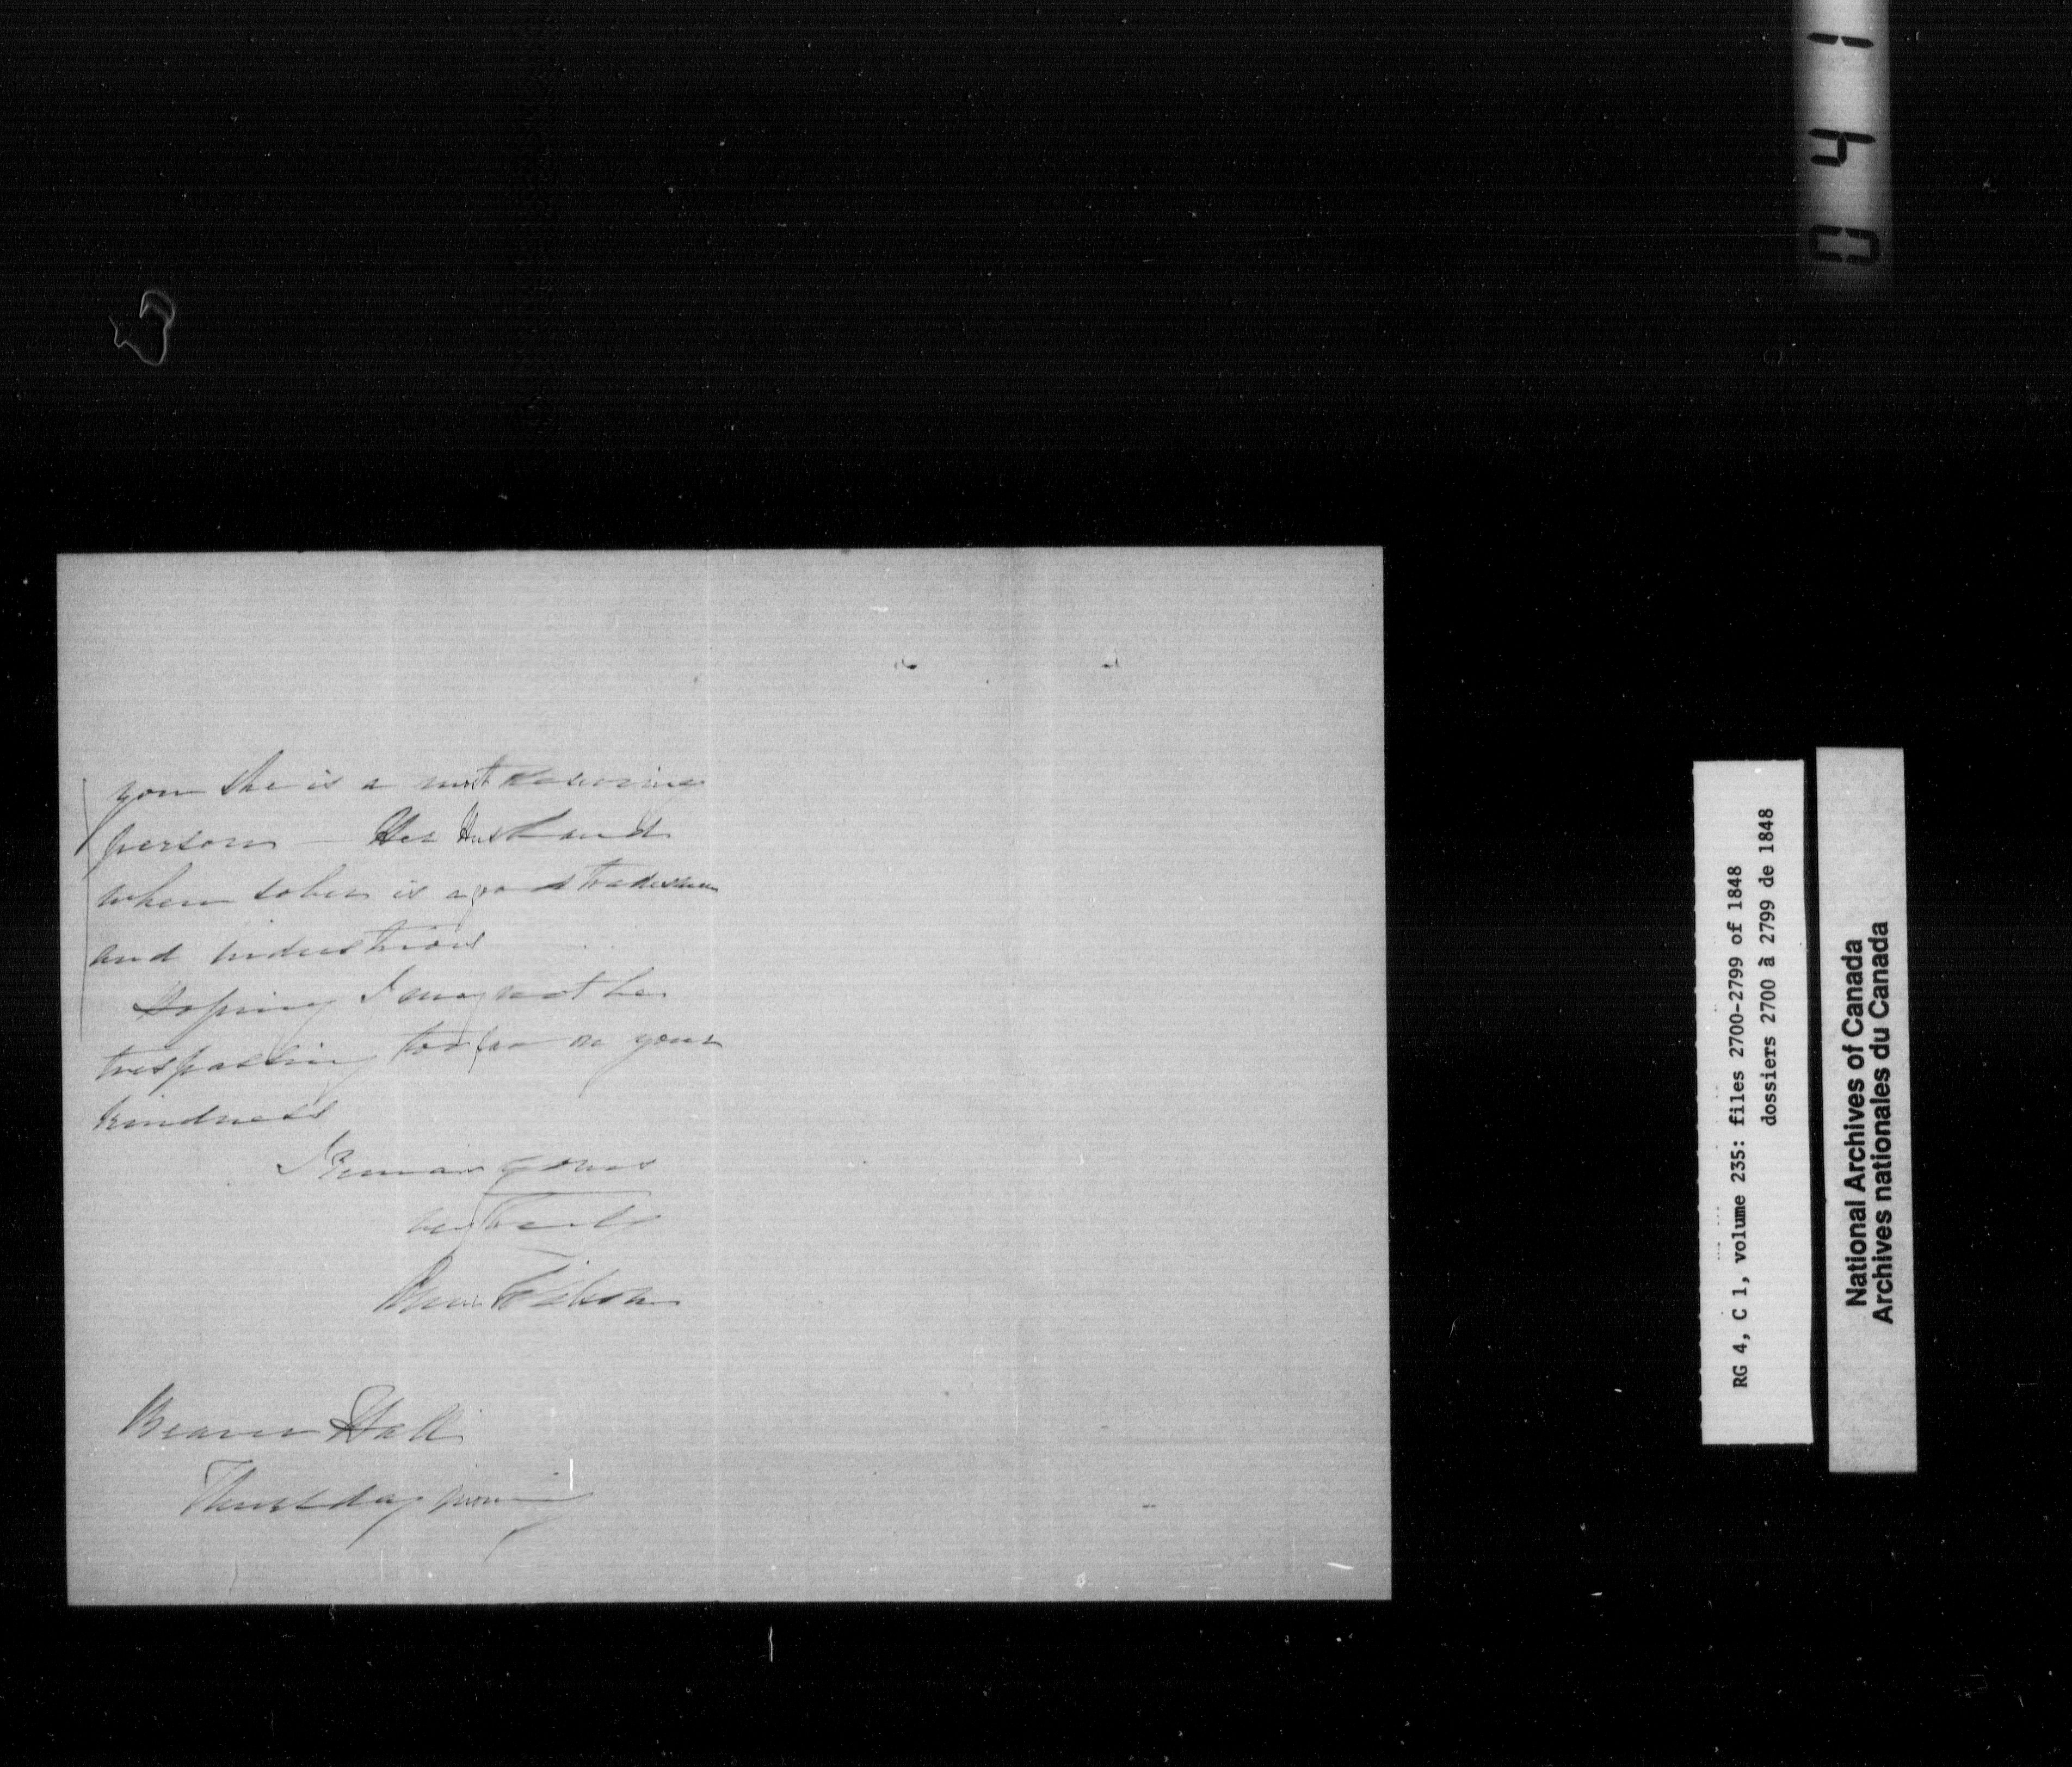 you she is a most deserving
person — Her Husband
when sober is a good tradesman
and industrious
Hoping I may not be
trespassing too far on your
kindness
I Remain yours
very truly
Beaver Hall
Thursday morning
041
RG 4, C 1, volume 235: files 2700-2799 of 1848
dossiers 2700 à 2799 de 1848
National Archives of Canada
Archives nationales du Canada